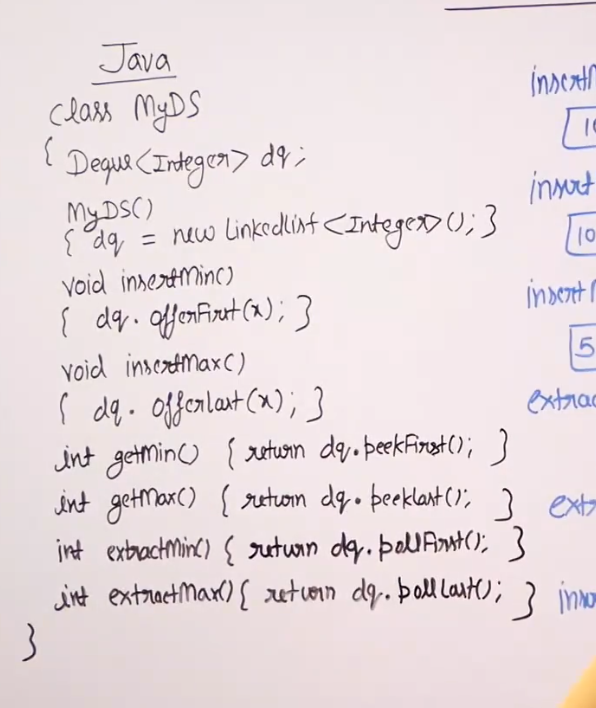 Java
class MyDS
{ Deque<Integer> dq;
MyDS()
{ dq = new LinkedList<Integer>(); }
void insertMin()
{ dq. offerFirst(x); }
void insertMax()
{ dq. offerLast(x); }
int getMin() { return dq.peekFirst(); }
int getMax() { return dq. peekLast(); }
int extractMin() { return dq. pollFirst(); }
int extractMax() { return dq. pollLast(); }
}
insert
10
insert
10
insert
5